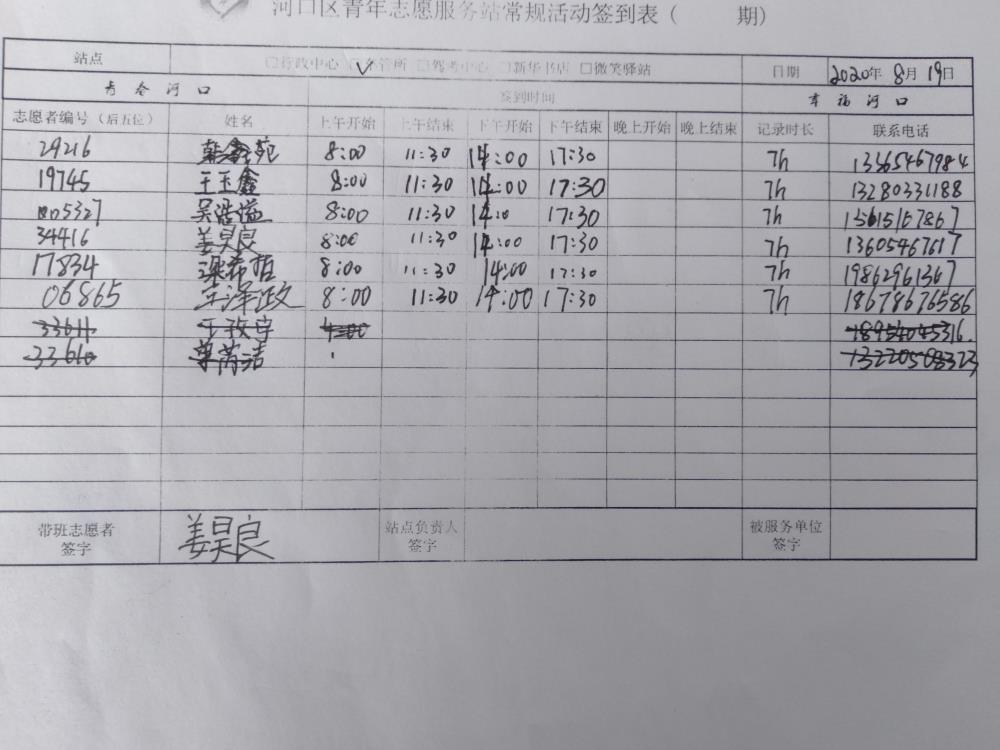 河口区青年志愿服务站常规活动签到表（ 期）
站点 □行政中心 ☑车管所 □驾考中心 □新华书店 □微笑驿站 日期 2020年 8月 19日
青春河口 签到时间 幸福河口
志愿者编号（后五位） 姓名 上午开始 上午结束 下午开始 下午结束 晚上开始 晚上结束 记录时长 联系电话
29216 苑 8:00 11:30 14:00 17:30 7h 13365467984
19745 王玉鑫 8:00 11:30 14:00 17:30 7h 13280331188
05327 吴浩溢 8:00 11:30 14:0 17:30 7h 15615157867
34416 姜昊良 8:00 11:30 14:00 17:30 7h 13605467617
17834 梁希哲 8:00 11:30 14:00 17:30 7h 19862961367
06865 王泽政 8:00 11:30 14:00 17:30 7h 18678676586
33611 于孜宇 4:00 18954045316
33610 单芮洁 13220508323
带班志愿者签字 姜昊良 站点负责人签字 被服务单位签字